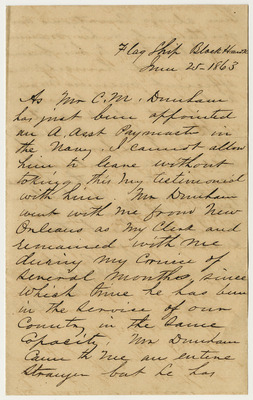 Flag Ship Black Hawk
June 25 - 1863
As Mr C. M. Dunham
has just been appointed
an A. Asst Paymastr in
the Navy. I cannot allow
him to leave without
taking this my testimonial
with him Mr Dunham
went with me from New
Orleans as my Clerk and
remained with me
during my Cruise of
several Months, since
which time he has been
in the service of our
Country in the same
Capacity. Mr Dunham
Came to me an entire
Stranger but he has